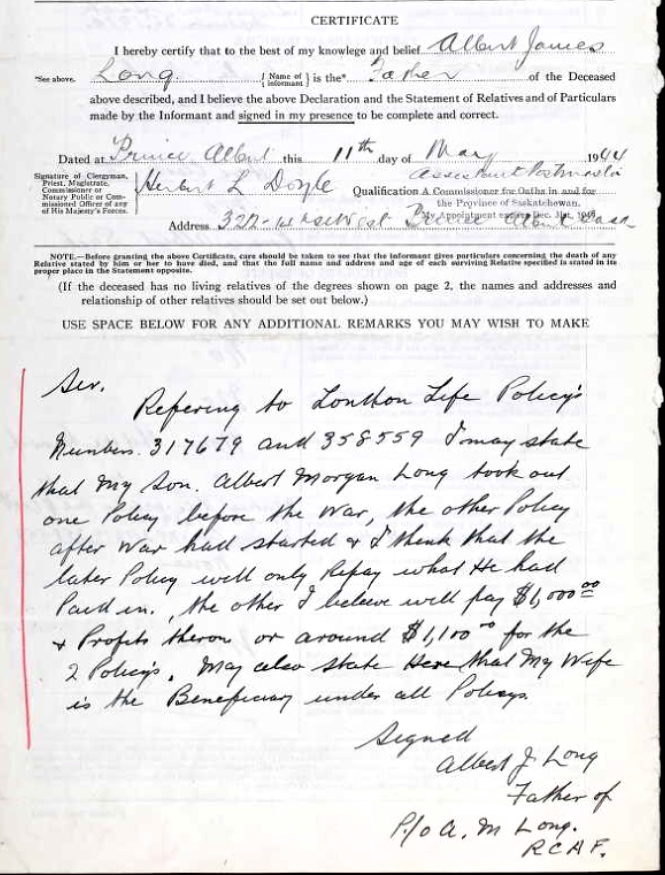 CERTIFICATE
I hereby certify that to the best of my knowlege and belief Albert James
*See above. Long. { Name of informant } is the* Father of the Deceased
above described, and I believe the above Declaration and the Statement of Relatives and of Particulars
made by the Informant and signed in my presence to be complete and correct.
Dated at Prince Albert this 11th day of May 1944
Signature of Clergyman,
Priest, Magistrate,
Commissioner or
Notary Public or Com-
missioned Officer of any
of His Majesty's Forces.
Herbert L Doyle
Assistant Postmaster
Qualification A Commissioner for Oaths in and for
the Province of Saskatchewan.
My Appointment expires Dec. 31st, 
Address 322-1st St West Prince Albert Sask
NOTE.—Before granting the above Certificate, care should be taken to see that the informant gives particulars concerning the death of any
Relative stated by him or her to have died, and that the full name and address and age of each surviving Relative specified is stated in its
proper place in the Statement opposite.
(If the deceased has no living relatives of the degrees shown on page 2, the names and addresses and
relationship of other relatives should be set out below.)
USE SPACE BELOW FOR ANY ADDITIONAL REMARKS YOU MAY WISH TO MAKE
Sir.
Refering to London Life Policy's
Numbers. 317679 and 358559 I may state
that My Son. Albert Morgan Long took out
one Policy before the War, the other Policy
after War had started & I think that the
later Policy will only Repay what He had
Paid in., the other I believe will pay $1,000 00
& Profits theron or around $1,100 00 for the
2 Policy's. May also state Here that My Wife
is the Beneficiary under all Policys.
Signed
Albert J Long
Father of
P/o A. M Long.
R C A F.